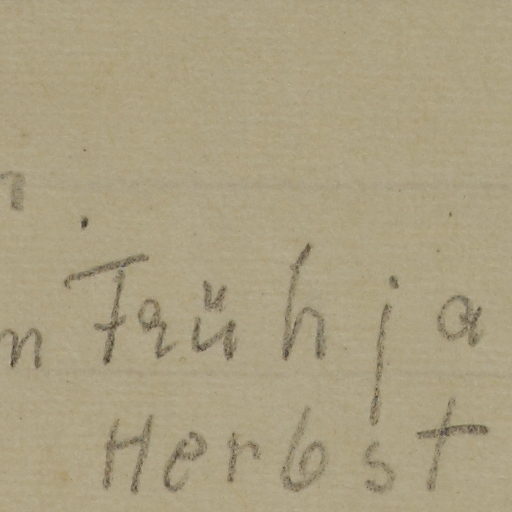 n Frühja
Herbst